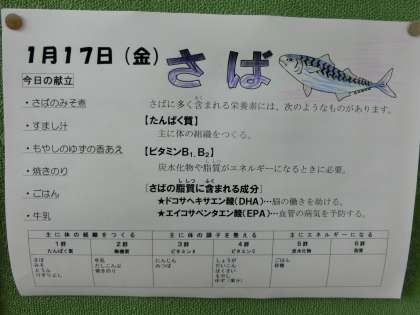 1月17日(金) さば
今日の献立
・さばのみそ煮
・すまし汁
・もやしのゆずの香あえ
・焼きのり
・ごはん
・牛乳
さばに多く含まれる栄養素には、次のようなものがあります。
【たんぱく質】
主に体の組織をつくる。
【ビタミンB₁、B₂】
炭水化物や脂質がエネルギーになるときに必要。
【さばの脂質に含まれる成分】
★ドコサヘキサエン酸(DHA)…脳の働きを助ける。
★エイコサペンタエン酸(EPA)…血管の病気を予防する。
主に体の組織をつくる 主に体の調子を整える 主にエネルギーになる
1群 2群 3群 4群 5群 6群
たんぱく質 無機質 ビタミンA ビタミンC 炭水化物 脂質
さば 牛乳 にんじん しょうが ごはん
みそ だしこんぶ みつば だいこん 砂糖
とうふ 焼きのり はくさい
けずりぶし もやし
ゆず(果汁)